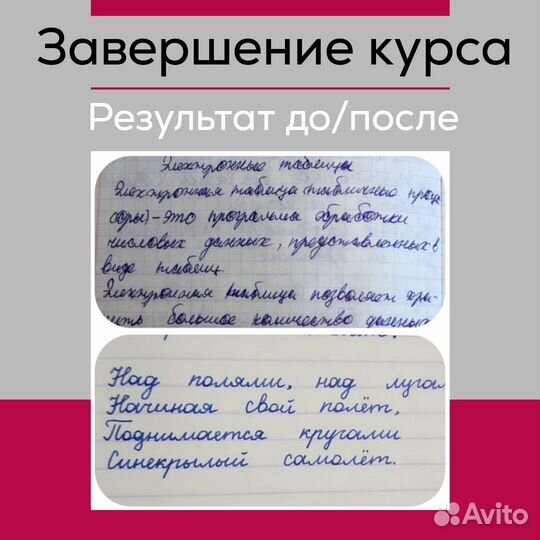 Завершение курса
Результат до/после
Электронные таблицы
Электронная таблица (табличные проце
ссоры) – это программа обработки
числовых данных, представленных в
виде таблиц.
Электронная таблица позволяет хра-
нить большое количество данных
Над полями, над лугам
Начиная свой полёт,
Поднимается кругами
Синекрылый самолёт.
Avito